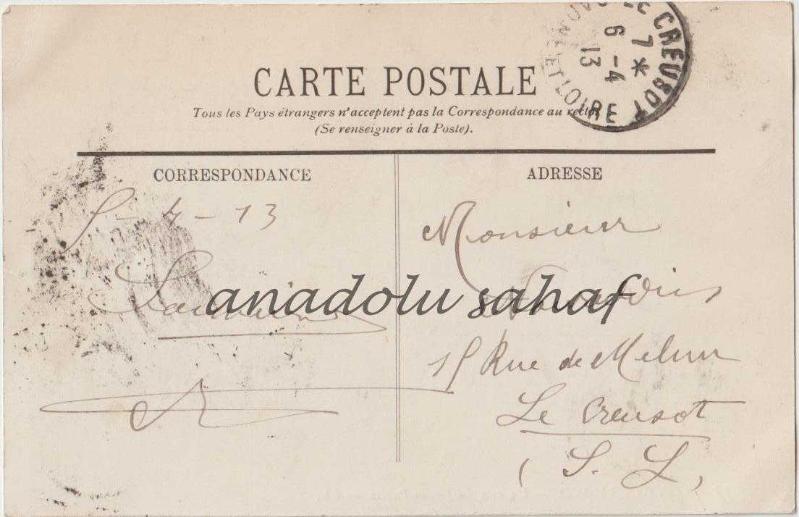 LE CREUSOT
7 *
6 - 4
13
ET LOIRE
CARTE POSTALE
Tous les Pays étrangers n'acceptent pas la Correspondance au recto
(Se renseigner à la Poste).
CORRESPONDANCE
5-4-13
ADRESSE
Monsieur
15 Rue de Melun
Le Creusot
(S. L,
anadolu sahaf